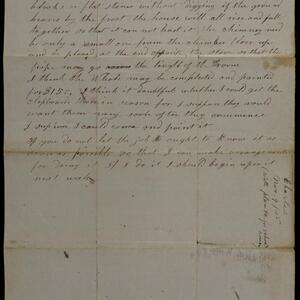 blocks or flat stone without digging if the ground
heaves by the frost the house will all rise and fall
together so that it can not hurt it. The chimney need
be only a small one from the chamber floor up
and be placed at the end opposite the stove so that the
pipe may go the length of the room
I think the whole may be completed and painted
for $125. I think it doubtful whether I could get the
house in season for I suppose they would
want them very soon after they commence
I suppose I could come and paint it.
If you do let the job I ought to know it as
soon as possible so that I can make arrangements
for doing it. If I do it I should begin upon it
next week
Charles
Nov 9